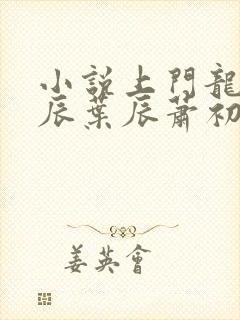 小說上門龍
辰葉辰蕭初
姜英會